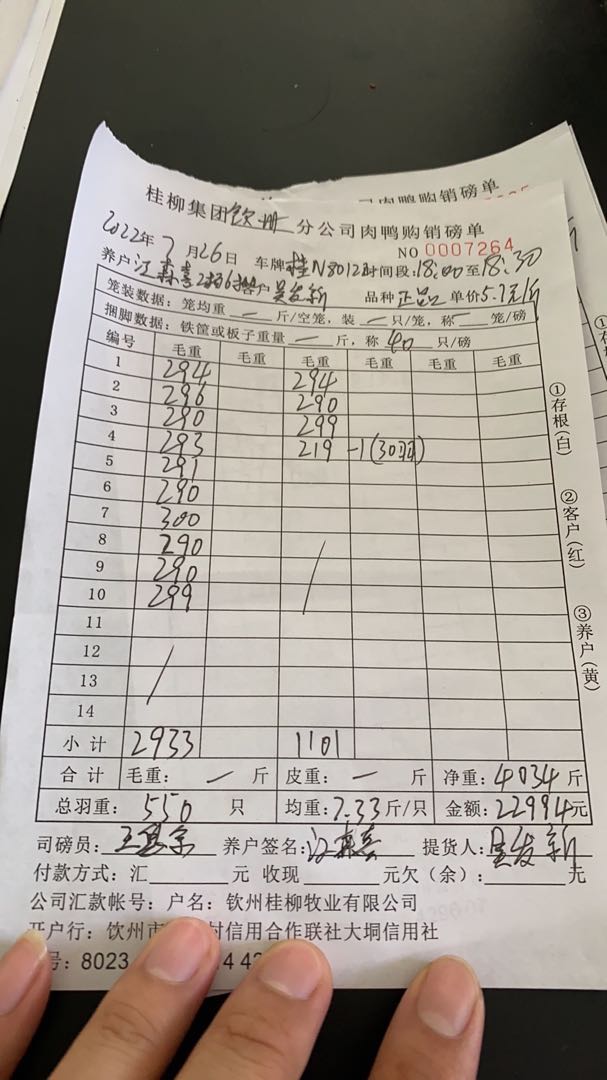 桂柳集团钦州分公司肉鸭购销磅单
2022年7月26日 车牌桂N80123时间段:18:00至18:30
NO 0007264
养户江森喜 客户吴发新 品种正品 单价5.7元/斤
笼装数据：笼均重 — 斤/空笼，装 — 只/笼，称 — 笼/磅
捆脚数据：铁筐或板子重量 — 斤，称 40 只/磅
编号 毛重 毛重 毛重 毛重 毛重 毛重
1 294 294
2 296 290
3 290 299
4 293 219 -1(30羽)
5 291
6 290
7 300
8 290
9 290
10 299
11
12
13
14
小计 2933 1101
合计 毛重： — 斤 皮重： — 斤 净重：4034斤
总羽重：550 只 均重：7.33斤/只 金额：22994元
司磅员： 养户签名：江森喜 提货人：吴发新
付款方式：汇 元 收现 元欠（余）： 元
公司汇款帐号：户名：钦州桂柳牧业有限公司
开户行：钦州市 村信用合作联社大垌信用社
号：8023 4 4
①存根(白)
②客户(红)
③养户(黄)
司肉鸭购销磅单